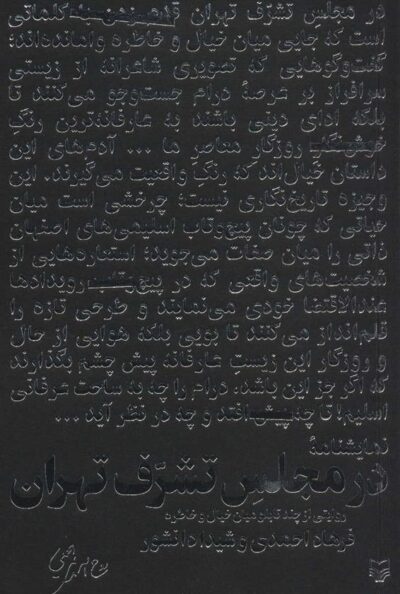 در مجلس تشرّف تهران کلماتی
است که جایی میان خیال و خاطره وامانده‌اند؛
گفت‌وگوهایی که تصویری شاعرانه از زیستی
سرافراز بر عرصهٔ درام جست‌وجو می‌کنند تا
بلکه ادای دینی باشند به عارفانه‌ترین رنگِ
روزگار معاصر ما ... آدم‌های این
داستان خیال‌اند که رنگ واقعیت می‌گیرند. این
وجیزه تاریخ‌نگاری نیست؛ چرخشی است میان
حیاتی که چونان پیچ‌وتاب اسلیمی‌های اصفهان
ذاتی را میان صفات می‌جوید؛ استعاره‌هایی از
شخصیت‌های واقعی که در رویدادها
عندالاقتضا خودی می‌نمایند و طرحی تازه را
قلم‌انداز می‌کنند تا بویی بلکه هوایی از حال
و روزگار این زیست عارفانه پیش چشم بگذارند
که اگر جز این باشد، درام را چه به ساحت عرفانی
اسلیم! تا چه افتد و چه در نظر آید ...
نمایشنامهٔ
در مجلس تشرّف تهران
روایتی از چند تابلو میان خیال و خاطره
فرهاد احمدی و شیدا دانشور